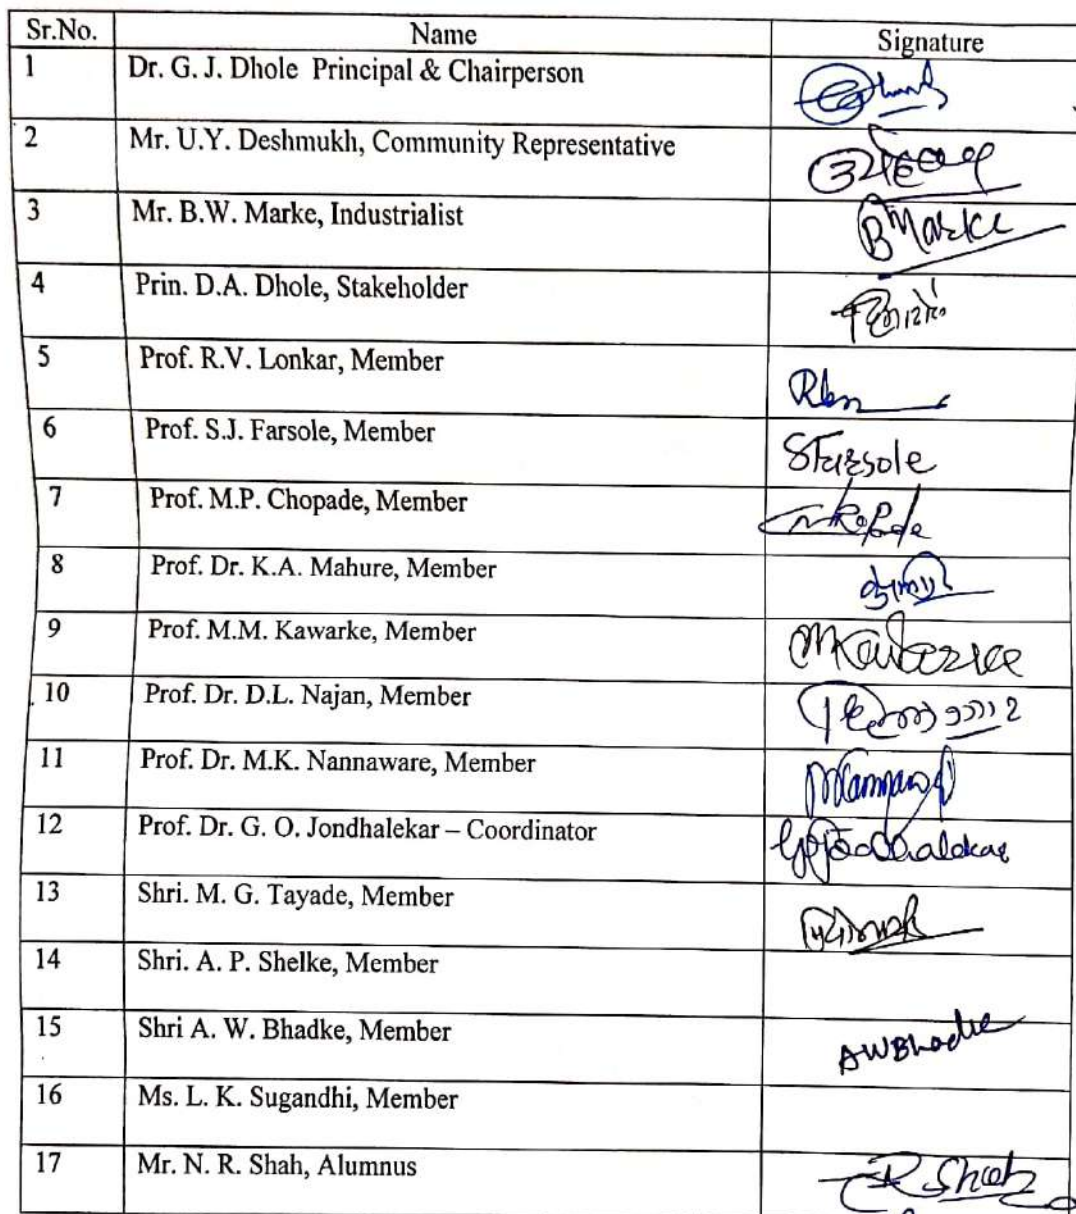 Sr.No. Name Signature
1 Dr. G. J. Dhole Principal & Chairperson
2 Mr. U.Y. Deshmukh, Community Representative
3 Mr. B.W. Marke, Industrialist BMarke
4 Prin. D.A. Dhole, Stakeholder
5 Prof. R.V. Lonkar, Member
6 Prof. S.J. Farsole, Member SFarsole
7 Prof. M.P. Chopade, Member
8 Prof. Dr. K.A. Mahure, Member
9 Prof. M.M. Kawarke, Member
10 Prof. Dr. D.L. Najan, Member
11 Prof. Dr. M.K. Nannaware, Member
12 Prof. Dr. G. O. Jondhalekar – Coordinator
13 Shri. M. G. Tayade, Member
14 Shri. A. P. Shelke, Member
15 Shri A. W. Bhadke, Member AWBhadke
16 Ms. L. K. Sugandhi, Member
17 Mr. N. R. Shah, Alumnus